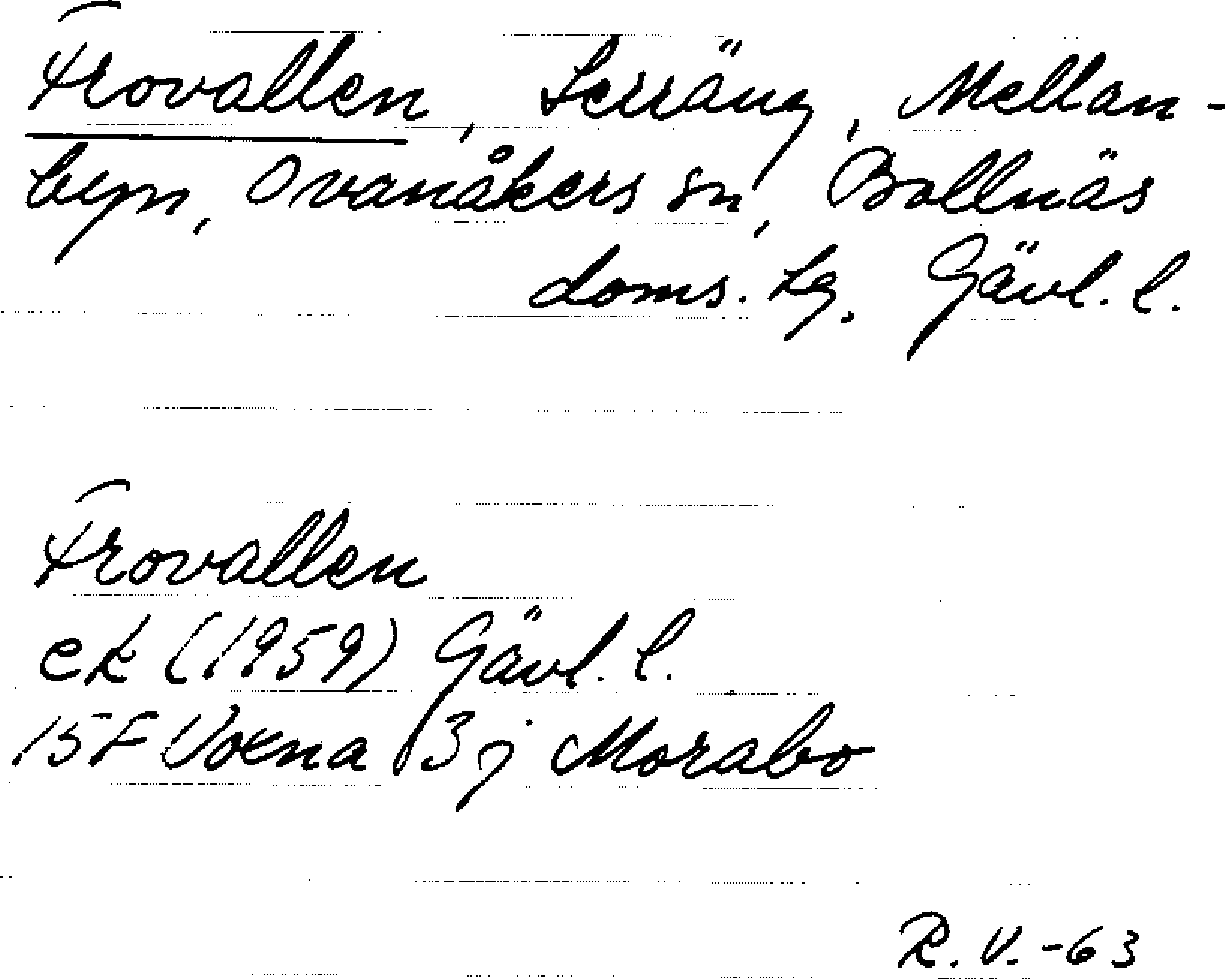 Frovallen, terräng, Mellan-
byn, Ovanåkers sn, Bollnäs
doms. tg. Gävl. l.
Frovallen
ek (1959) Gävl. l.
15F Voxna 3j Morabo
R.V.-63